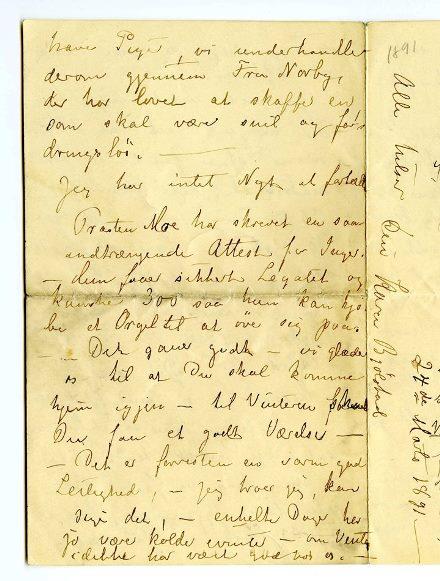 have Piger, vi underhandler
derom gjennem Fru Norby,
der har lovet at skaffe en
som skal være snil og for
dringsløs.
Jeg har intet Nyt at fortælle
Prosten Moe har skrevet en saa
indtrængende Attest for Inger.
— hun faaer sikkert Legatet og
kanske 300 saa hun kan kjø
be et Orgel til at øve sig paa.
— Det gaaer godt — vi glæde
os til at Du skal komme
hjem igjen — til Vinteren
Du faa et godt Værelse —
— Det er forresten en varm god
Leilighed, — jeg troer jeg kan
sige det, — enkelte Dage her
jo være kolde — om Vinte
ikke har vært god hos os. —
1891.
Alle hilser Dig
24de Marts 1891 —